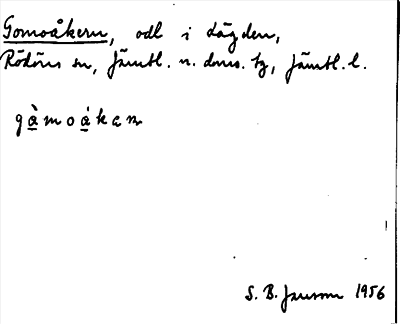 Gomoåkern, odl i Lägden,
Rödöns sn, Jämtl. n. doms. tg, Jämtl. l.
gàmoákan
S. B. Jansson 1956